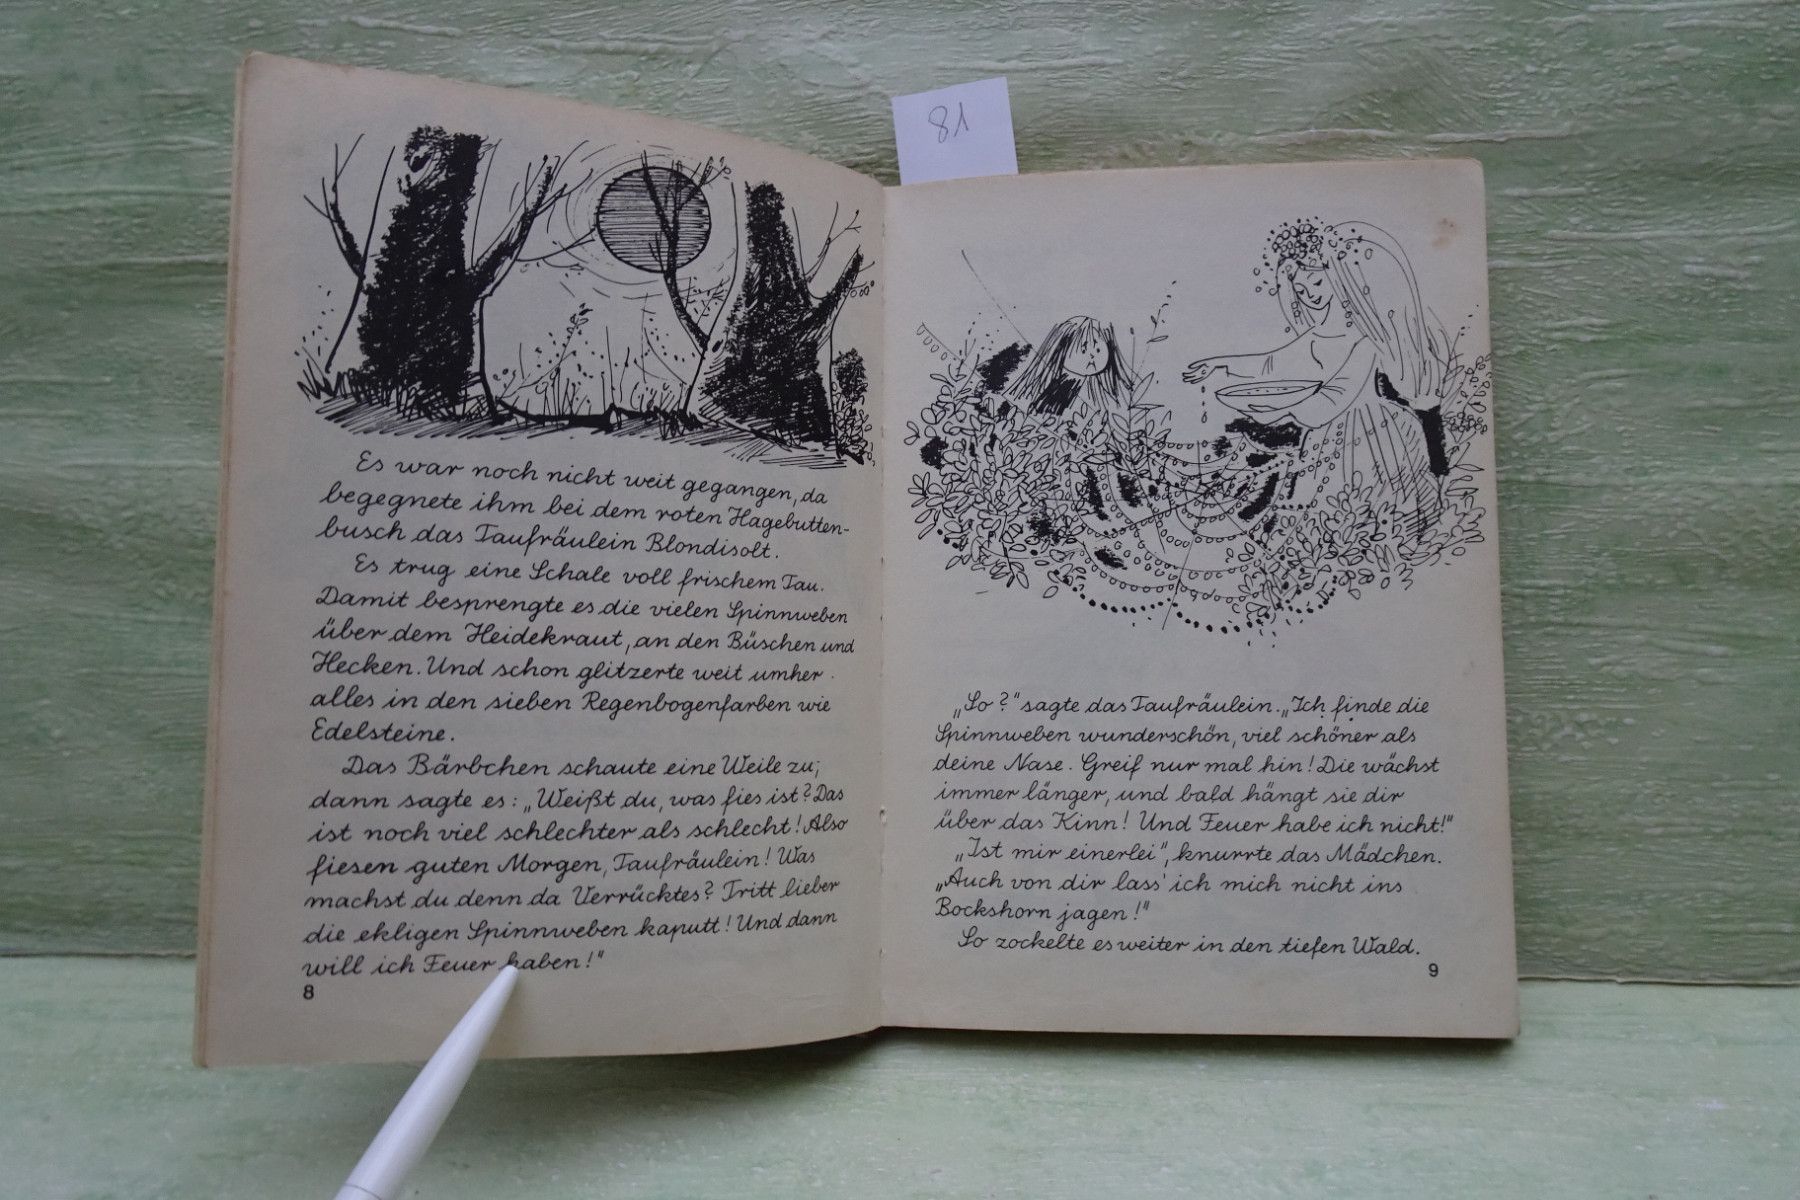 81
Es war noch nicht weit gegangen, da
begegnete ihm bei dem roten Hagebutten-
busch das Taufräulein Blondisolt.
Es trug eine Schale voll frischem Tau.
Damit besprengte es die vielen Spinnweben
über dem Heidekraut, an den Büschen und
Hecken. Und schon glitzerte weit umher
alles in den sieben Regenbogenfarben wie
Edelsteine.
Das Bärbchen schaute eine Weile zu;
dann sagte es: „Weißt du, was fies ist? Das
ist noch viel schlechter als schlecht! Also
fiesen guten Morgen, Taufräulein! Was
machst du denn da Verrücktes? Tritt lieber
die ekligen Spinnweben kaputt! Und dann
will ich Feuer haben!“
8
„So?“ sagte das Taufräulein. „Ich finde die
Spinnweben wunderschön, viel schöner als
deine Nase. Greif nur mal hin! Die wächst
immer länger, und bald hängt sie dir
über das Kinn! Und Feuer habe ich nicht!“
„Ist mir einerlei“, knurrte das Mädchen.
„Auch von dir lass' ich mich nicht ins
Bockshorn jagen!“
So zockelte es weiter in den tiefen Wald.
9